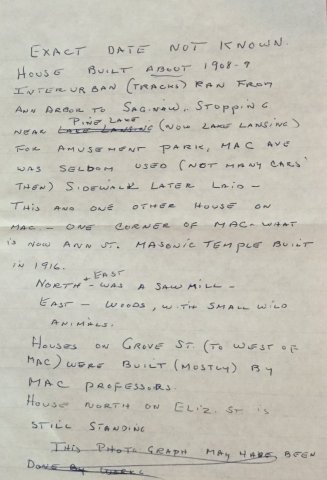 EXACT DATE NOT KNOWN.
HOUSE BUILT ABOUT 1908-9
INTERURBAN (TRACKS) RAN FROM
ANN ARBOR TO SAGINAW. STOPPING
PINE LAKE
NEAR LAKE LANSING (NOW LAKE LANSING)
FOR AMUSEMENT PARK, MAC AVE
WAS SELDOM USED (NOT MANY CARS
THEN) SIDEWALK LATER LAID -
THIS AND ONE OTHER HOUSE ON
MAC - ONE CORNER OF MAC - WHAT
IS NOW ANN ST. MASONIC TEMPLE BUILT
IN 1916.
+ EAST
NORTH - WAS A SAW MILL -
EAST - WOODS, WITH SMALL WILD
ANIMALS.
HOUSES ON GROVE ST. (TO WEST OF
MAC) WERE BUILT (MOSTLY) BY
MAC PROFESSORS.
HOUSE NORTH ON ELIZ. ST IS
STILL STANDING
THIS PHOTOGRAPH MAY HAVE BEEN
DONE BY